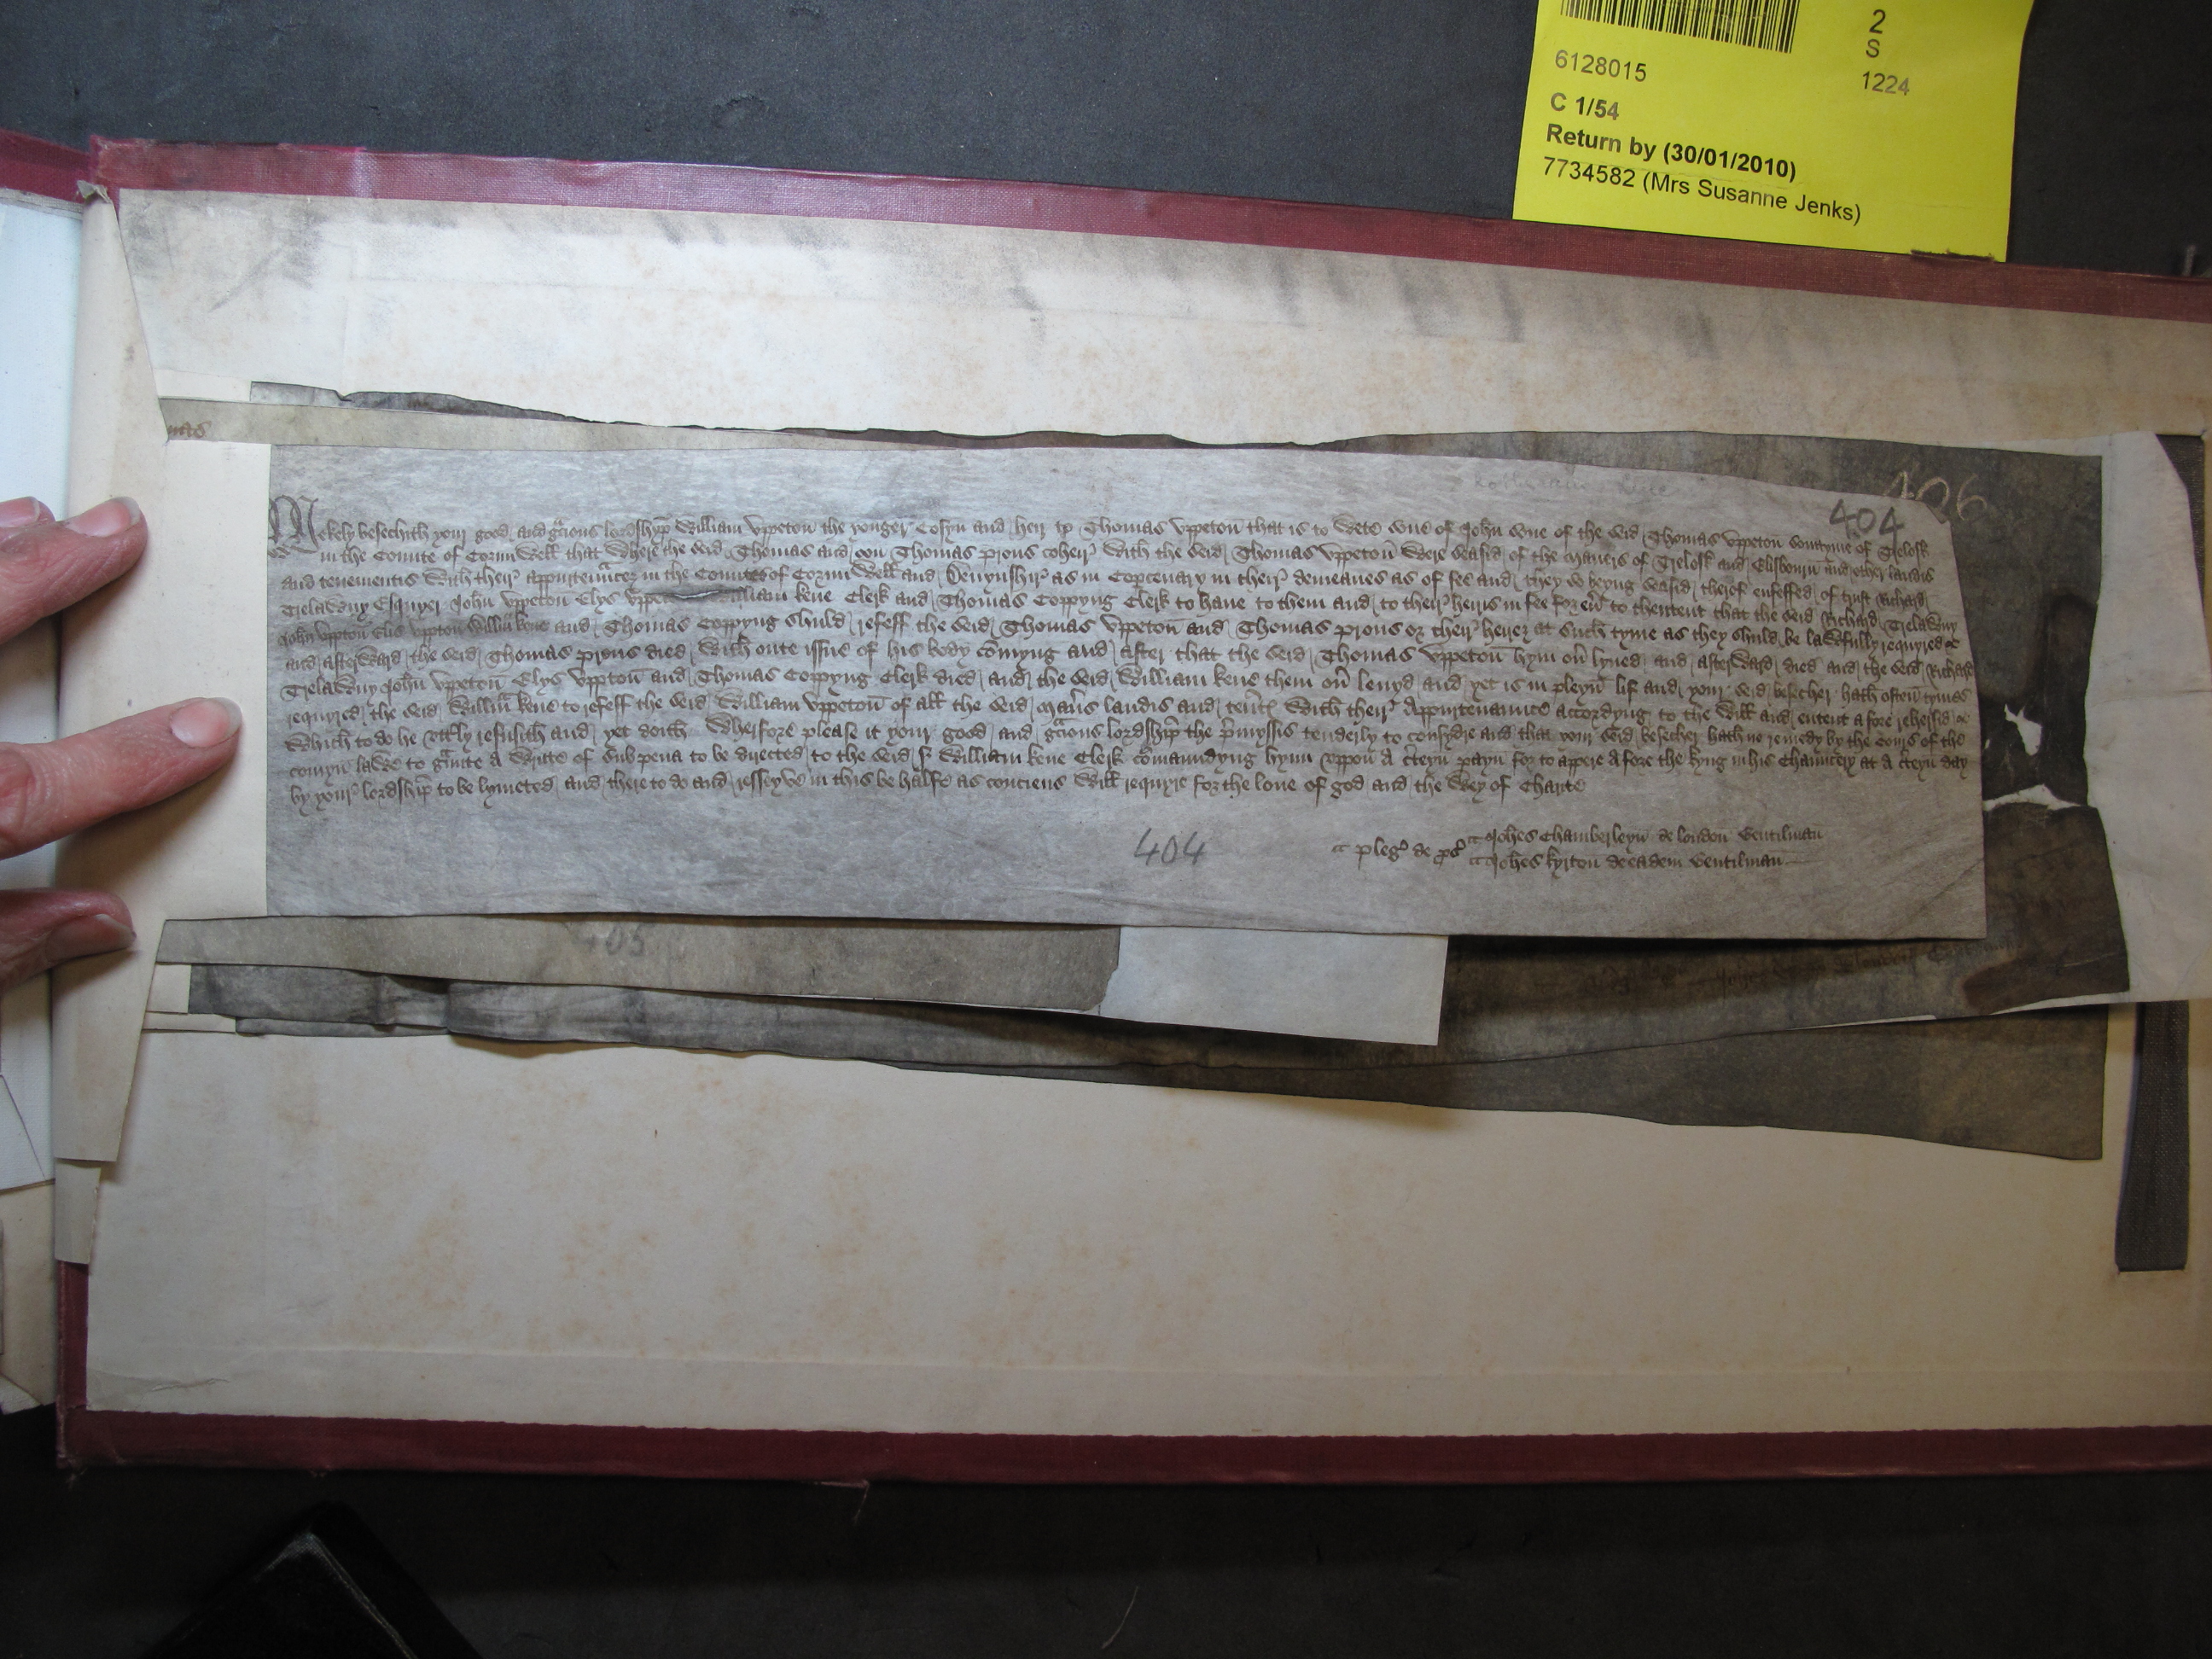 2
S
6128015
1224
C 1/54
Return by (30/01/2010)
7734582 (Mrs Susanne Jenks)
406
404
Mekely besechith your good and gracious lordshipp William Uppeton the yonger Cosyn and heir to Thomas Uppeton that is to wete sone of John sone of the seid Thomas Uppeton of Trelosk
in the Comite of Cornnwell that where the seid Thomas and oon Thomas prous coheir with the seid Thomas Uppeton were seasid of the maners of Trelosk and Clisbourn and other landis
and tenementis with their appurtenncez in the Comites of Cornnwell and Denynshir as in Copcenary in their demeanes as of fee and they so beyng seasid therof enfeffed of trust Richard
Trelawny Esquyer John Uppeton Elys Uppe William kene Clerk and Thomas Coppyng Clerk to haue to them and to their heiris in fee for en to thentent that the seid Richard Trelawny
John Uppton Elis Uppton Willm kene and Thomas Coppyng shuld refeff the seid Thomas Uppeton and Thomas prous or their heyez at such tyme as they shuld be lawfully requyred &
and afterward the seid Thomas prous died with oute issue of his body comyng and after that the seid Thomas Uppeton hym on lyued and afterward died and the seid Richard
Trelawny John Uppeton Elys Uppton and Thomas Coppyng Clerk died and the seid William kene them on leuyd and yet is in pleyn lif and your seid besecher hath often tymes
requyred the seid Willm kene to refeff the seid William Uppeton of all the seid maners landis and tents with their Appurtenannce accordyng to the will and entent a fore rehersid &
which to do he uttly refusith and yet doith Wherfore please it your good and gracious lordshipp the pmyssis tenderly to consydre and that your seid besecher hath no remedy by the cours of the
comyn lawe to graunte a writte of subpena to be directed to the seid sr William kene Clerk comaundyng hym uppon a cteyn payn for to appere a fore the kyng in his Chauncery at a cteyn day
by your lordship to be lymeted and there to do and resseyve in this be halfe as conciens will requyre for the loue of god and the wey of Charite
404
pleg de ps Johes Chamberleyn de london Gentilman
Johes kyrton de eadem Gentilman
405